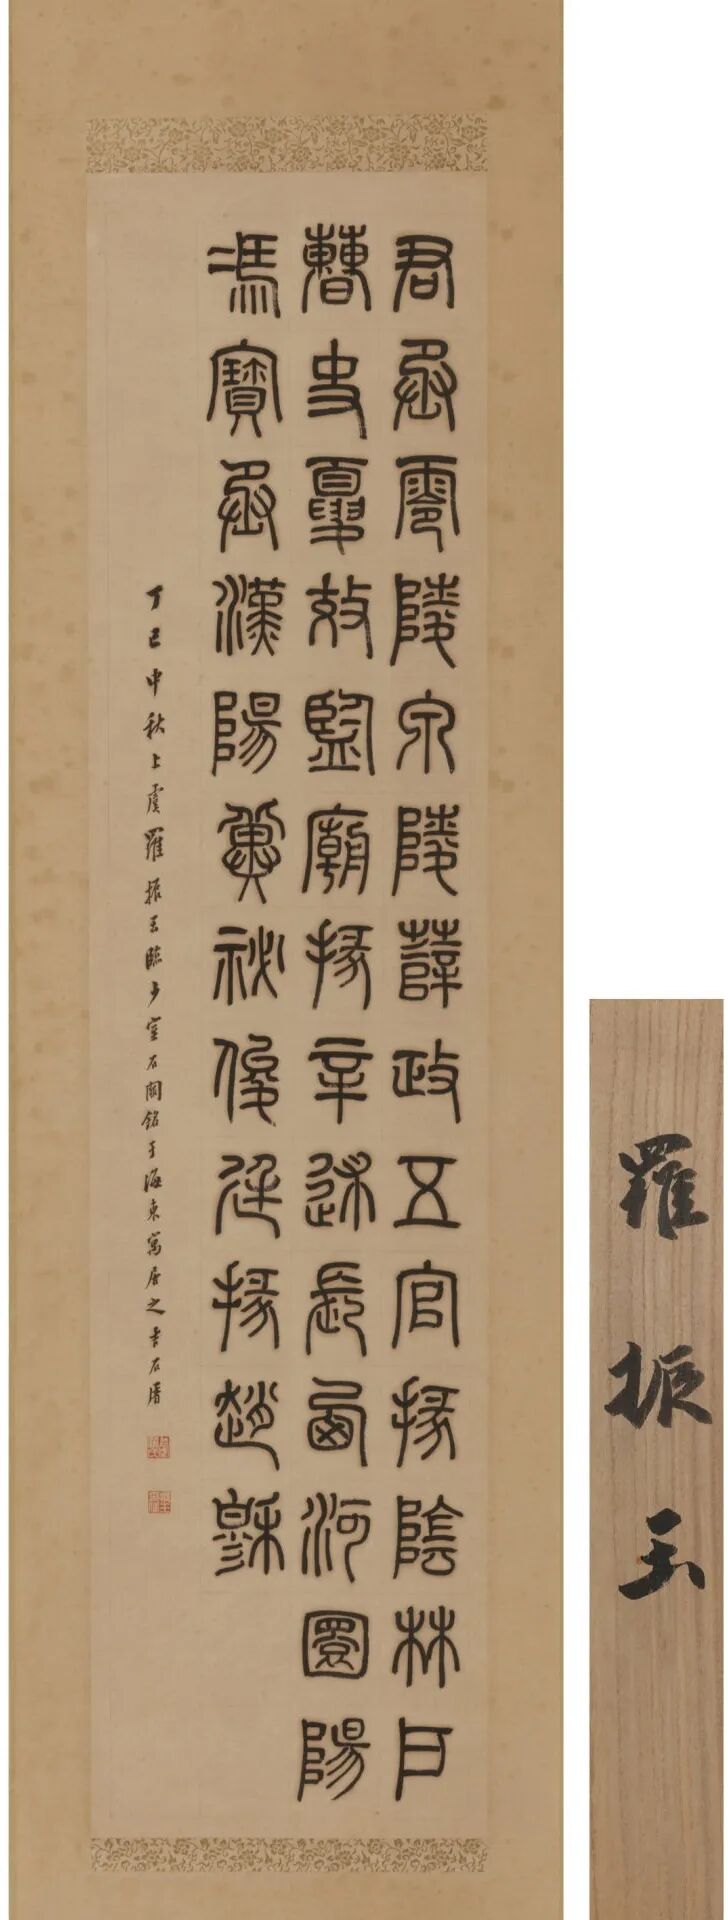 君丞零陵泉陵薛政五官掾陰林戶
曹史夏效監廟掾辛述長西河圜陽
馮寶丞漢陽冀祕俊廷掾趙穆
丁巳中秋上虞羅振玉臨少室石闕銘于海東寓居之吉石盦
羅振玉